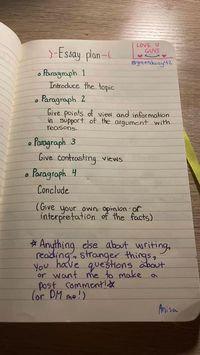 }-Essay plan-{
I LOVE U
GUYS
Paragraph 1
Introduce the topic
Paragraph 2
Give points of view and information
in support of the argument with
reasons.
Paragraph 3
Give contrasting views
Paragraph 4
Conclude
(Give your own opinion or
interpretation of the facts)
Anything else about writing,
reading, stranger things,
you have questions about
or want me to make a
post comment!
(or DM me!)